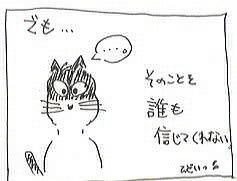 でも…
…。
そのことを
誰も
信じてくれない